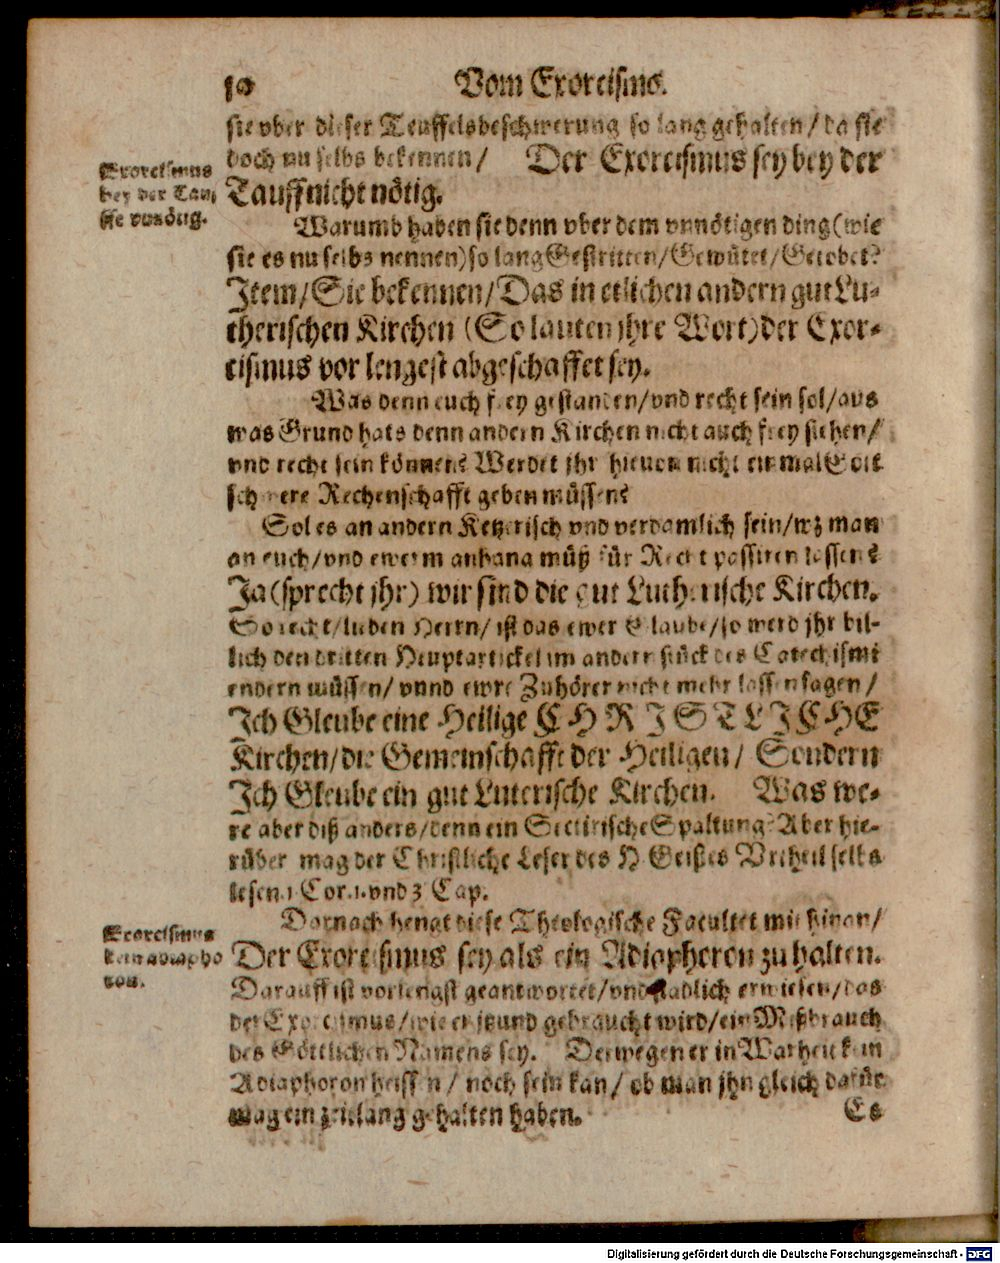 50 Vom Exorcismo.
sie vber dieser Teuffelsbeschwerung so lang gehalten / da sie
doch nu selbs bekennen / Der Exorcismus sey bey der
Tauff nicht nötig.
Exorcismus
bey der Tau,
ffe vnnötig.
Warumb haben sie denn vber dem vnnötigen ding (wie
sie es nu selbs nennen) so lang Gestritten / Gewütet / Getobet?
Item / Sie bekennen / Das in etlichen andern gut Lu-
therischen Kirchen (So lauten jhre Wort) der Exor-
cismus vor lengest abgeschaffet sey.
Was denn euch frey gestanden / vnd recht sein sol / aus
was Grund hats denn andern Kirchen nicht auch frey stehen /
vnd recht sein können? Werdet jhr hieuon nicht ein mal Gott
schwere Rechenschafft geben müssen?
Sol es an andern Ketzerisch vnd verdamlich sein / wz man
an euch / vnd ewerm anhang müß für Recht passiren lassen?
Ja (sprecht jhr) wir sind die gut Lutherische Kirchen.
So recht / lieben Herrn / ist das ewer Glaube / so werd jhr bil-
lich den dritten Heuptartickel im andern stück des Catechismi
endern müssen / vnnd ewre Zuhörer nicht mehr lassen sagen /
Ich Gleube eine Heilige CHRISTLICHE
Kirchen / die Gemeinschafft der Heiligen / Sondern
Ich Gleube ein gut Luterische Kirchen. Was we-
re aber diß anders / denn ein Sectirische Spaltung? Aber hie-
rüber mag der Christliche Leser des H Geistes Vrtheil selbs
lesen 1 Cor. 1. vnd 3 Cap.
Darnach hengt diese Theologische Facultet mit hinan /
Der Exorcismus sey als ein Adiaphoron zu halten.
Exorcismus
kein adiapho
ron.
Darauff ist vorlengst geantwortet / vnd erwiesen / das
der Exorcismus / wie er jtzund gebraucht wird / ein Mißbrauch
des Göttlichen Namens sey. Derwegen er in Warheit kein
Adiaphoron heissen / noch sein kan / ob man jhn gleich dafür
mag ein zeitlang gehalten haben.
Es
Digitalisierung gefördert durch die Deutsche Forschungsgemeinschaft - DFG